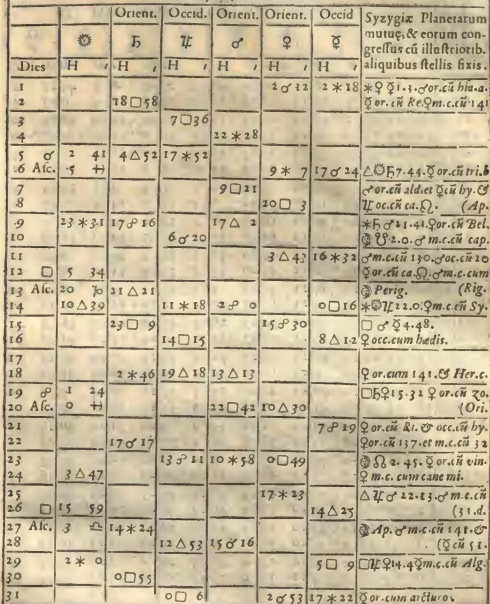 Orient. Occid. Orient. Orient. Occid Syzygiæ Planetarum
mutuę, & eorum con-
☼ ♄ ♃ ♂ ♀ ☿ gressus cū illustriorib.
Dies H , H , H , H , H , H , aliquibus stellis fixis.
1 2 ☌ 12 2 ⚹ 18 ⚹ ♀ ☿ 1.3. ♂ or.cū hia.a.
2 18 □ 58 ☿ or. cū Re. ♀ m.c.cū 141
3 7 □ 36
4 22 ⚹ 28
5 ☌ 2 41 4 △ 52 17 ⚹ 52
6 Asc. 5 ♓ 9 ⚹ 7 17 ☌ 24 △ ☼ ♄ 7.44. ☿ or.cū tri.b
7 9 □ 21 ♂ or.cū ald.et ☿ cū by. &
8 20 □ 3 ♃ oc.cū ca. ♌. (Ap.
9 23 ⚹ 31 17 ☍ 16 17 △ 2 ⚹ ♄ ♂ 21.41. ♀ or.cū Bel.
10 6 ☌ 20 ☋ 2.0. ♂ m.c.cū cap.
11 3 △ 43 16 ⚹ 32 ♂ m.c.cū 130. ♂ oc.cū 20
12 □ 5 34 ☿ or.cū ca. ♌. ♂ m.c.cum
13 Asc. 20 ♑ 21 △ 21 Perig. (Rig.
14 10 △ 39 11 ⚹ 18 2 ☍ 0 0 □ 16 ⚹ ☼ ♃ 22.0. ♀ m.c.cū Sy.
15 23 □ 9 15 ☍ 30 □ ♂ ☿ 4.48.
16 14 □ 15 8 △ 12 ♀ occ.cum hædis.
17
18 2 ⚹ 46 19 △ 18 13 △ 13 ♀ or.cum 141. & Her.c.
19 ☍ 1 24 □ ♄ ♀ 15.32 ♀ or.cū 20.
20 Asc. 0 ♓ 22 □ 42 10 △ 30 (Ori.
21 7 ☍ 19 ♀ or.cū Ri. & occ.cū by.
22 17 ☌ 17 ♀ or.cū 137.et m.c.cū 32
23 13 ☍ 11 10 ⚹ 58 0 □ 49 ☊ 2.45. ♀ or.cū vin-
24 3 △ 47 ♀ m.c. cum cane mi.
25 17 ⚹ 23 △ ♃ ♂ 22.13. ♂ m.c.cū
26 □ 15 59 14 △ 25 (31.d.
27 Asc. 3 ♎ 14 ⚹ 24 Ap. ♂ m.c.cū 141. &
28 12 △ 53 15 ☌ 16 (☿ cū 51.
29 2 ⚹ 0 5 □ 9 □ ♃ ♀ 14.4 ♀ m.c.cū Alg.
30 0 □ 55
31 0 □ 6 2 ☌ 53 17 ⚹ 22 ☿ or.cum arcturo.